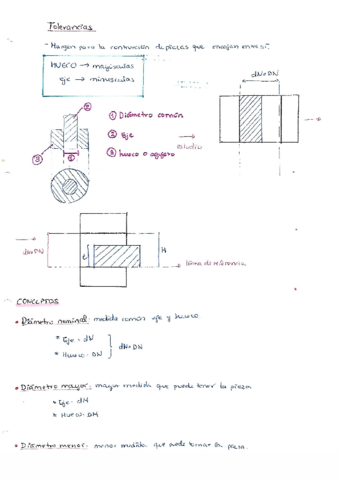 Tolerancias
- Margen para la construcción de piezas que encajan entre sí.
HUECO → mayúsculas
Eje → minúsculas
dN=DN
②
① Diámetro común
② Eje
③ hueco o agujero
③
①
estudio
dN=DN
H
línea de referencia
CONCEPTOS
• Diámetro nominal: medida común eje y hueco
* Eje - dN
* Hueco - DN
dN=DN
• Diámetro mayor: mayor medida que puede tener la pieza
* Eje - dM
* Hueco - DM
• Diámetro menor: menor medida que puede tomar la pieza.